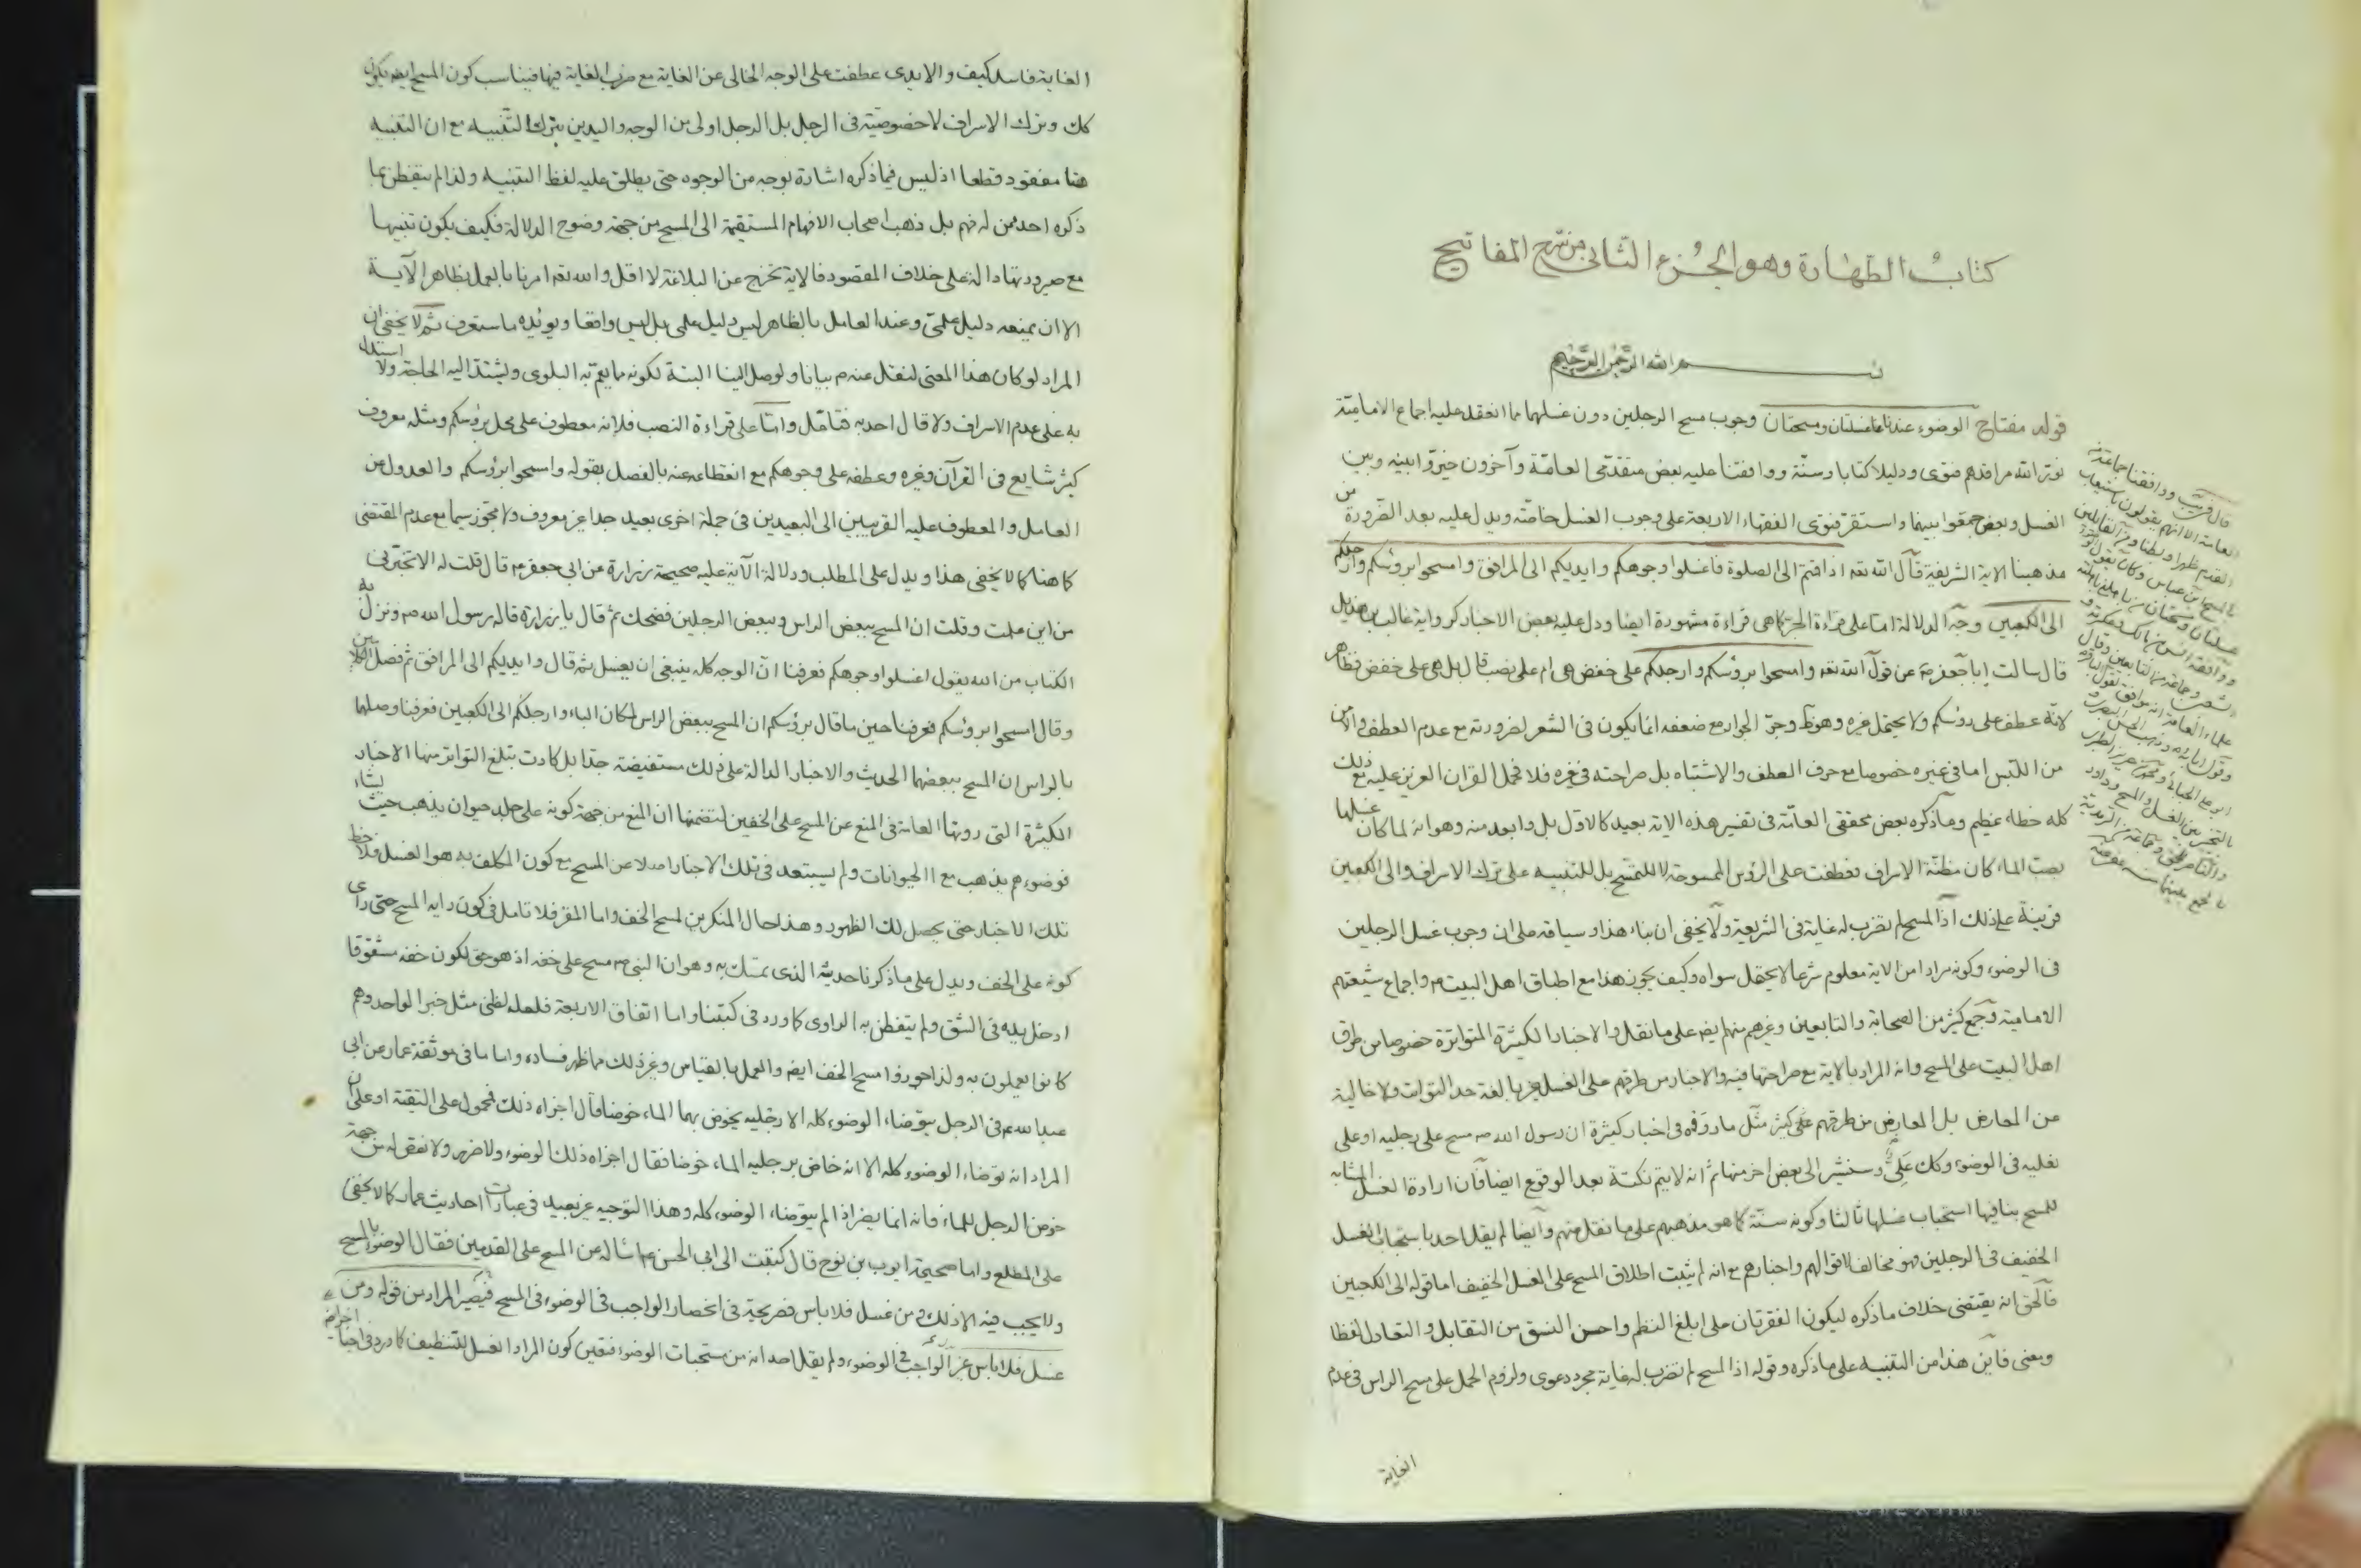 كتاب الطهارة وهو الجزء الثاني من شرح المفاتيح
بسم الله الرحمن الرحيم
قوله مفتاح الوضوء عندنا غسلتان ومسحتان وجوب مسح الرجلين دون غسلهما مما انعقد عليه اجماع الامامية
نور الله مراقدهم فتوى ودليلا كتابا وسنة ووافقنا عليه بعض متقدمي العامة وآخرون خيروا بينه وبين
الغسل وبعض جمعوا بينهما واستقر فتوى الفقهاء الاربعة على وجوب الغسل خاصة ويدل عليه بعد الضرورة من
مذهبنا الاية الشريفة قال الله تعه اذا قمتم الى الصلوة فاغسلوا وجوهكم وايديكم الى المرافق وامسحوا برؤسكم وارجلكم
الى الكعبين وجه الدلالة اما على قراءة الجر كما هي قراءة مشهورة ايضا ودل عليه بعض الاخبار كرواية غالب بن هذيل
قال سالت ابا جعفر عن قول الله تعه وامسحوا برؤسكم وارجلكم على خفض هي ام على نصب قال بل هي على خفض فظاهر
لانه عطف على رؤسكم ولا يحتمل غيره وهو وجر الجوار مع ضعفه انما يكون في الشعر لضرورته مع عدم العطف والامن
من اللبس اما في غيره خصوصا مع حرف العطف والاشتباه بل صراحته في غيره فلا فحمل القران العزيز عليه مع ذلك
كله خطاء عظيم وما ذكره بعض محققي العامة في تفسير هذه الاية بعيد كالاول بل وابعد منه وهو انه لما كان غسلها
بصب الماء كان مظنة الاسراف فعطفت على الرؤس الممسوحة لا للتمسح بل للتنبيه على ترك الاسراف والى الكعبين
قرينة على ذلك اذ المسح لم تضرب له غاية في الشريعة ولا يخفى ان بناء هذا وسياقه على ان وجوب غسل الرجلين
في الوضوء وكونه مرادا من الاية معلوم شرعا لا يحتمل سواه وكيف يجوز هذا مع اطباق اهل البيت واجماع شيعتهم
الامامية وجمع كثير من الصحابة والتابعين وغيرهم منهم ايضه على ما نقل والاخبار الكثيرة المتواترة خصوصا من طرق
اهل البيت على المسح وانه المراد بالاية مع صراحتها فيه والاخبار من طرقهم على الغسل غير بالغة حد التواتر ولا خالية
من المعارض بل المعارض من طرقهم على كثير مثل ما رووه في اخبار كثيرة ان رسول الله ص مسح على رجليه او على
نعليه في الوضوء وكك علي وسنشير الى بعض اخر منها ثم انه لا يتم نكتة بعد الوقوع ايضا فان ارادة الغسل المشابه
للمسح ينافيها استحباب غسلها ثالثا وكونه سنة كما هو مذهبهم على ما نقل منهم وايضا لم يقل احد باستحباب الغسل
الخفيف في الرجلين فهو مخالف لاقوالهم واخبارهم مع انه لم يثبت اطلاق المسح على الغسل الخفيف اما قوله الى الكعبين
فالحق انه يقتضي خلاف ما ذكره ليكون الفقرتان على ابلغ النظم واحسن النسق من التقابل والتعادل لفظا
ومعنى فاين هذا من التنبيه على ما ذكره وقوله اذ المسح لم تضرب له غاية مجرد دعوى ولزوم الحمل على مسح الراس في عدم
الغاية
الغاية فاسد كيف والايدي عطفت على الوجه الخالي عن الغاية مع ضرب الغاية فيها فيناسب كون المسح ايضه يكون
كك وترك الاسراف لا خصوصية في الرجل بل الرجل اولى من الوجه واليدين بترك التنبيه مع ان التنبيه
هنا مفقود قطعا اذ ليس فيما ذكره اشارة بوجه من الوجوه حتى يطلق عليه لفظ التنبيه ولذا لم يتفطن بما
ذكره احد ممن له فهم بل ذهب اصحاب الافهام المستقيمة الى المسح من جهة وضوح الدلالة فكيف يكون تنبيها
مع صيرورتها دالة على خلاف المقصود فالاية تخرج عن البلاغة لا اقل والله تعه امرنا بالعمل بظاهر الآية
الا ان يمنعه دليل علمي وعند العامل بالظاهر ليس دليل علمي بل ليس واقعا ويؤيده ما ستعرف ثم لا يخفى ان
المراد لو كان هذا المعنى لنقل عنه م بيانا ولوصل الينا البتة لكونه مما يعم به البلوى ويشتد اليه الحاجة ولا استدل
به على عدم الاسراف ولا قال احد به فتامل واما على قراءة النصب فلانه معطوف على محل برؤسكم ومثله معروف
كثير شايع في القرآن وغيره وعطفه على وجوهكم مع انقطاعه عنه بالفصل بقوله وامسحوا برؤسكم والعدول عن
العامل والمعطوف عليه القريبين الى البعيدين في جملة اخرى بعيد جدا غير معروف ولا مجوز سيما مع عدم المقتضى
كما هنا كما لا يخفى هذا ويدل على المطلب ودلالة الآية عليه صحيحة زرارة عن ابي جعفر م قال قلت له الا تخبرني
من اين علمت وقلت ان المسح ببعض الراس وببعض الرجلين فضحك ثم قال يا زرارة قاله رسول الله ص ونزل به
الكتاب من الله يقول اغسلوا وجوهكم فعرفنا ان الوجه كله ينبغي ان يغسل ثم قال وايديكم الى المرافق ثم فصل بين الكلام
وقال امسحوا برؤسكم فعرفنا حين ما قال برؤسكم ان المسح ببعض الراس لمكان الباء وارجلكم الى الكعبين فعرفنا وصلهما
بالراس ان المسح ببعضهما الحديث والاخبار الدالة على ذلك مستفيضة جدا بل كادت تبلغ التواتر منها الاخبار
الكثيرة التي روتها العامة في المنع عن المسح على الخفين لتضمنها ان المنع من جهة كونه على جلد حيوان يذهب حيث يشاء
فوضوءهم يذهب مع الحيوانات ولم يستبعد في تلك الاخبار اصلا عن المسح مع كون المكلف به هو الغسل فلاحظ
تلك الاخبار حتى يحصل لك الظهور وهذا حال المنكرين لمسح الخف واما المقر فلا تامل في كون رايه المسح حتى راى
كونه على الخف ويدل على ما ذكرنا حديثه الذي تمسك به وهو ان النبي ص مسح على خفه اذ هو حق لكون خفه مشقوقا
ادخل يده في الشق ولم يتفطن به الراوي كما ورد في كتبنا واما اتفاق الاربعة فلعله لظني مثل خبر الواحد وهم
كانوا يعملون به ولذا جوزوا مسح الخف ايضه والعمل بالقياس وغير ذلك مما ظهر فساده واما ما في موثقة عمار عن ابي
عبد الله م في الرجل يتوضاء الوضوء كله الا رجليه يخوض بهما الماء خوضا قال اجزاه ذلك فمحمول على التقية او على ان
المراد انه توضاء الوضوء كله الا انه خاض برجليه الماء خوضا فقال اجزاه ذلك الوضوء ولا ضرر ولا نقص له من جهة
خوض الرجل للماء فانه انما يضر اذا لم يتوضاء الوضوء كله وهذا التوجيه غير بعيد في عبارات احاديث عمار كما لا يخفى
على المطلع واما صحيحة ايوب بن نوح قال كتبت الى ابي الحسن م اساله عن المسح على القدمين فقال الوضوء بالمسح
ولا يجب فيه الا ذلك ومن غسل فلا باس فصريحة في انحصار الواجب في الوضوء في المسح فيصير المراد من قوله ومن
غسل فلا باس غير الواجب في الوضوء ولم يقل احد انه من مستحبات الوضوء فتعين كون المراد الغسل للتنظيف كما ورد في